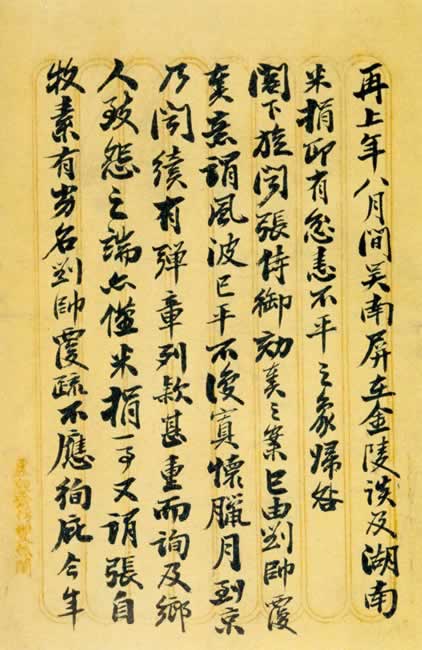 再上年八月間吴南屏在金陵談及湖南
米捐即有忿恚不平之象歸咎
閣下旋聞張侍御劾奏之案已由劉帥覆
奏意謂風波已平不復寘懷臘月到京
乃聞續有彈章列款甚重而詢及鄉
人致怨之端亦僅米捐一事又謂張自
牧素有劣名劉帥覆疏不應徇庇今年